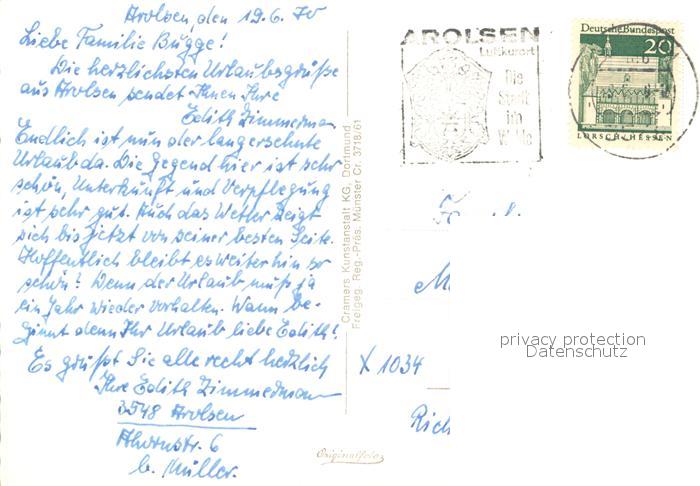 Arolsen, den 19.6.70
Liebe Familie Bugge!
Die herzlichsten Urlaubsgrüße
aus Arolsen sendet Ihnen Ihre
Edith Zimmermann
Endlich ist nun der langersehnte
Urlaub da. Die Gegend hier ist sehr
schön, Unterkunft und Verpflegung
ist sehr gut. Auch das Wetter zeigt
sich bis jetzt von seiner besten Seite.
Hoffentlich bleibt es weiterhin so
schön? Denn der Urlaub muß ja
ein Jahr wieder vorhalten. Wann be-
ginnt denn Ihr Urlaub liebe Edith?
Es grüßt Sie alle recht herzlich
Ihre Edith Zimmermann
3548 Arolsen
Ahornstr. 6
b. Müller.
Cramers Kunstanstalt KG, Dortmund
Freigeg. Reg.-Präs. Münster Cr. 3718/61
AROLSEN
Luftkurort
Die
Stadt
im
Deutsche Bundespost
20
LORSCH/HESSEN
X 1034
Rich
privacy protection
Datenschutz
Originalfoto